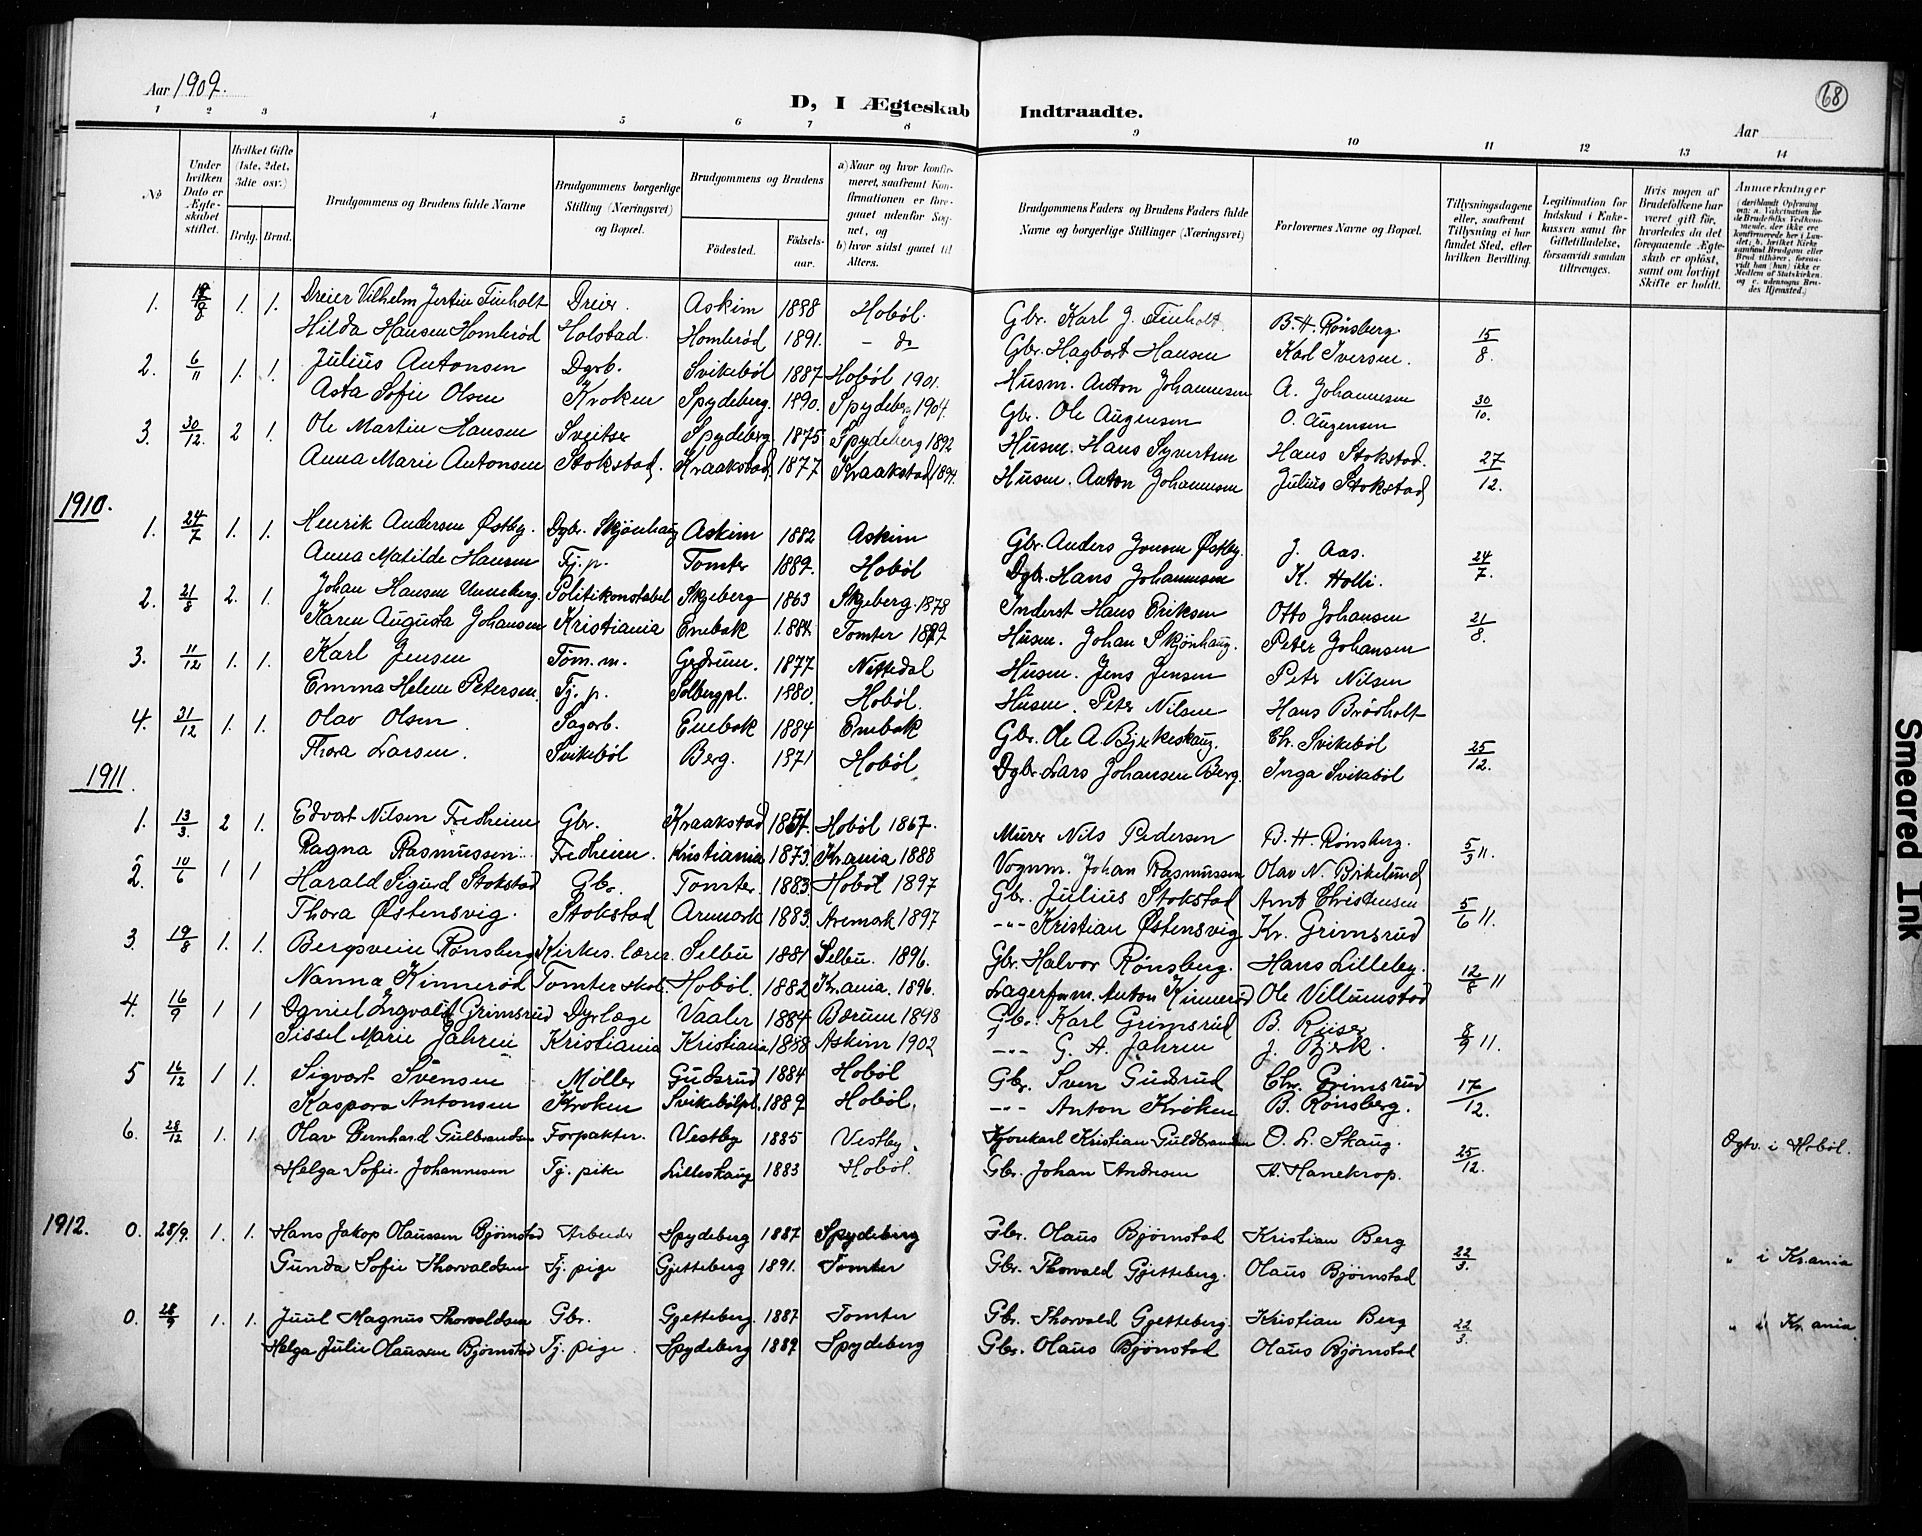 Aar 1909.
D, I Ægteskab Indtraadte.
68
Aar
1 2 3 4 5 6 7 8 9 10 11 12 13 14
No
Under hvilken Dato er Ægteskabet stiftet.
Hvilket Gifte (1ste, 2det, 3die osv.)
Brdg. Brud.
Brudgommens og Brudens fulde Navne
Brudgommens borgerlige Stilling (Næringsvei) og Bopæl.
Brudgommens og Brudens
Fødested. Fødselsaar.
a) Naar og hvor konfirmeret, saafremt Konfirmationen er foregaaet udenfor Sognet, og
b) hvor sidst gaaet til Alters.
Brudgommens Faders og Brudens Faders fulde Navne og borgerlige Stillinger (Næringsvei)
Forlovernes Navne og Bopæl.
Tillysningsdagene eller, saafremt Tillysning ei har fundet Sted, efter hvilken Bevilling.
Legitimation for Indskud i Enkekassen samt for Giftetilladelse, forsaavidt saadan tiltrænges.
Hvis nogen af Brudefolkene har været gift før, hvorledes da det foregaaende Ægteskab er opløst, samt om lovligt Skifte er holdt.
Anmærkninger
1. 1. 1. Dreier Vilhelm Jertin Finholt Dreier. Askim 1888 Hobøl. Gbr. Karl J. Finholt. B. H. Rønsberg. 15/8.
Hilda Hansen Hombrød Holstad. Hombrød 1891. – do Gbr. Hagbart Hansen Karl Iversen.
2. 6/11 1. 1. Julius Antonsen Dgrb. Svikebøl 1887 Hobøl 1901. Husm. Anton Johannesen A. Johannesen 30/10.
Asta Sofie Olsen Kroken Spydeberg. 1890. Spydeberg 1904. Gbr. Ole Augensen O. Augensen
3. 30/12. 2 1. Ole Martin Hansen Sveitser Spydeberg 1875 Spydeberg 1892 Husm. Hans Syvertsen Hans Stokstad. 27/12.
Anna Marie Antonsen Stokstad. Kraakstad 1877 Kraakstad 1894. Husm. Anton Johannesen Julius Stokstad
1910.
1. 24/7 1. 1. Henrik Andersen Østby. Dgbr. Skjønhaug Askim 1882 Askim Gbr. Anders Jonsen Østby. J. Aas. 24/7.
Anna Matilde Hansen Tj. p. Tomter 1889. Hobøl Dgbr. Hans Johannesen K. Holli.
2. 21/8 2. 1. Johan Hansen Unneberg. Politikonstabel Skjeberg 1863 Skjeberg. 1878 Inderst Hans Eriksen Otto Johansen 21/8.
Karen Augusta Johansen Kristiania Enebak 1884. Tomter Husm. Johan Skjønhaug. Peter Johansen
3. 11/12 1. 1. Karl Jensen Tøm. m. Gjdrum. 1877 Nittedal Husm. Jens Jensen Petr Nilsen
Emma Helene Petersen. Tj. p. Solbergpl. 1880. Hobøl. Husm. Peter Nilsen Hans Brødholt
4. 31/12 1. 1. Olav Olsen Sagarb. Enebak 1884 Enebak Gbr. Ole A. Bjerkeskaug. Chr. Svikebøl 25/12.
Thora Larsen. Svikebøl Berg. 1871 Hobøl Dgbr. Lars Johansen Berg. Inga Svikebøl
1911.
1. 13/3. 2 1. Edvart Nilsen Fredheim Gbr. Kraakstad Hobøl 1867. Murer Nils Pedersen B. H. Rønsberg. 5/3 11.
Ragna Rasmussen. Fredheim. Kristiania 1873. Kr.ania 1888 Vognm. Johan Rasmussen Olav N. Birkelund
2. 10/6 1 1 Harald Sigurd Stokstad Gbr. Tomter. 1883. Hobøl 1897 Gbr. Julius Stokstad Arnt Christensen 5/6 11.
Thora Østensvig. Stokstad Aremark 1883. Aremark 1897 -„- Kristian Østensvig Kr. Grimsrud
3. 19/8 1. 1. Bergsvein Rønsberg Kirkes. lærer. Selbu 1881 Selbu. 1896. Gbr. Halvor Rønsberg. Hans Lilleby. 12/8 11
Nanna Kinnerød Tomter skol. Hobøl. 1882 Kr.ania. 1896. Lagerform. Anton Kinnerød Ole Villumstad
4. 16/9 1 1 Daniel Ingvald Grimsrud Dyrlæge Vaaler 1884 Bærum 1898 Gbr. Karl Grimsrud B. Riiser 8/9 11.
Sissel Marie Jahren Kristiania Kristiania 1888 Askim 1902 -„- G. A. Jahren J. Bjerk.
5 16/12 1 1. Sigvart Svensen Møller Gudsrud 1884 Hobøl Gbr. Sven Gudsrud Chr. Grimsrud 17/12.
Kaspora Antonsen Kroken Svikebølpl. 1889 Hobøl. -„- Anton Kroken B. Rønsberg.
6. 28/12 1. 1. Olav Bernhard Gulbrandsen Forpakter. Vestby 1885 Vestby. Kjørekarl Kristian Guldbrandsen O. L. Skaug. 25/12. Ogtv. i Hobøl.
Helga Sofie Johannesen Tj. pike Lilleskaug 1883 Hobøl. Gbr. Johan Andresen A. Hanekrop.
1912. 0. 28/9. 1. 1. Hans Jakop Olaussen Bjørnstad Arbeider Spydeberg 1887 Spydeberg Gbr. Olaus Bjørnstad Kristian Berg 22/3.
Gunda Sofie Thorvaldsen Tj. pige Gjetteberg 1891. Tomter Gbr. Thorvald Gjetteberg. Olaus Bjørnstad „ i Kr.ania
0. 28/9 1. 1. Juul Magnus Thorvaldsen Gbr. Gjetteberg. 1887 Tomter Gbr. Thorvald Gjetteberg. Kristian Berg 22/3. „ i Kr.ania.
Helga Julie Olausen Bjørnstad Tj. pige. Spydeberg 1889 Spydeberg Gbr. Olaus Bjørnstad Olaus Bjørnstad
Smeared Ink